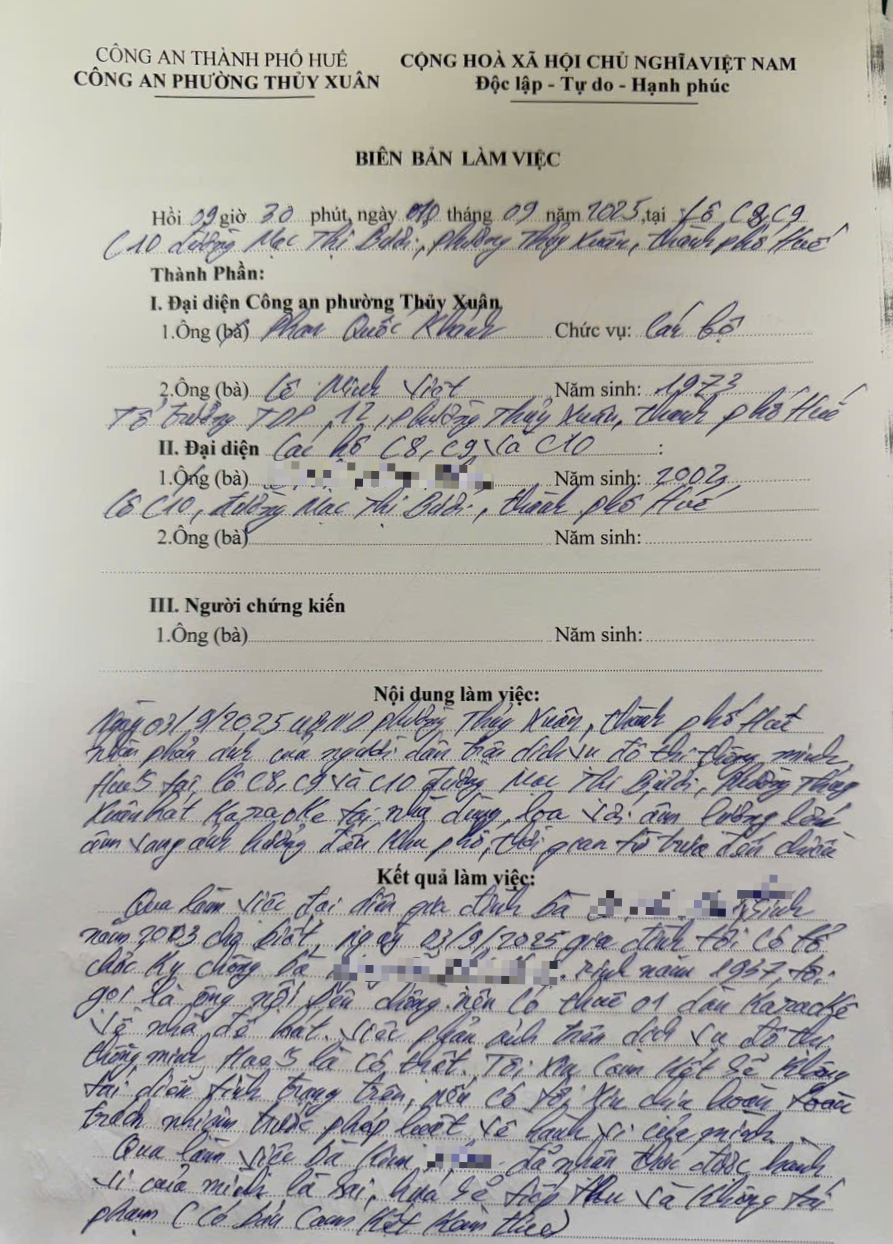 CÔNG AN THÀNH PHỐ HUẾ
CÔNG AN PHƯỜNG THỦY XUÂN
CỘNG HOÀ XÃ HỘI CHỦ NGHĨAVIỆT NAM
Độc lập - Tự do - Hạnh phúc
BIÊN BẢN LÀM VIỆC
Hồi 09 giờ 30 phút, ngày 10 tháng 09 năm 2025, tại Lô C8, C9
C10 đường Mạc Thị Bưởi, phường Thủy Xuân, thành phố Huế
Thành Phần:
I. Đại diện Công an phường Thủy Xuân
1.Ông (bà) Phan Quốc Khánh Chức vụ: Cán bộ
2.Ông (bà) Lê Minh Việt Năm sinh: 1973
Tổ trưởng TDP 12, phường Thủy Xuân, thành phố Huế
II. Đại diện các hộ C8, C9 và C10 :
1.Ông (bà) Năm sinh: 2002
Lô C10, đường Mạc Thị Bưởi, thành phố Huế
2.Ông (bà) Năm sinh:
III. Người chứng kiến
1.Ông (bà) Năm sinh:
Nội dung làm việc:
Ngày 03/9/2025 UBND phường Thủy Xuân, thành phố Huế
nhận phản ánh của người dân trên dịch vụ đô thị thông minh
Hue S tại lô C8, C9 và C10 đường Mạc Thị Bưởi, phường Thủy
Xuân hát Karaoke tại nhà dùng loa với âm lượng lớn
âm vang ảnh hưởng đến khu phố, thời gian từ trưa đến chiều
Kết quả làm việc:
Qua làm việc đại diện gia đình bà sinh
năm 2003 cho biết, ngày 03/9/2025 gia đình tôi có tổ
chức kỵ chồng bà sinh năm 1937, tôi
gọi là ông nội bên chồng nên có thuê 01 dàn Karaoke
về nhà để hát. Việc phản ánh trên dịch vụ đô thị
thông minh Hue S là có thật. Tôi xin cam kết sẽ không
tái diễn tình trạng trên, nếu có tôi xin chịu hoàn toàn
trách nhiệm trước pháp luật về hành vi của mình.
Qua làm việc bà đã nhận thức được hành
vi của mình là sai, hứa sẽ tiếp thu và không tái
phạm (Có bản cam kết kèm theo)